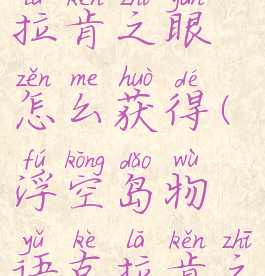 lā kěn zhī yǎn
拉肯之眼
zěn me huò dé
怎么获得(
fú kōng dǎo wù
浮空岛物
yǔ kè lā kěn zhī
语克拉肯之